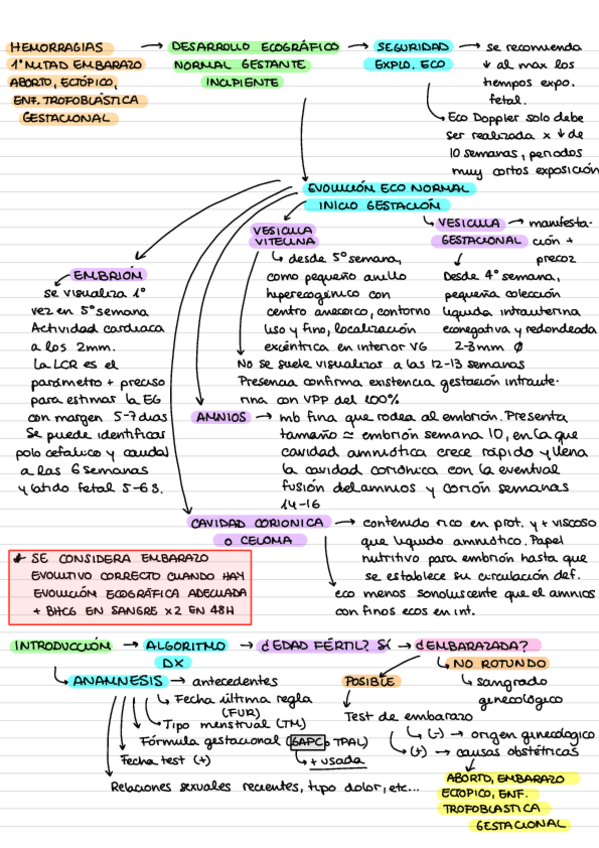 HEMORRAGIAS
1ª MITAD EMBARAZO
ABORTO, ECTÓPICO,
ENF. TROFOBLÁSTICA
GESTACIONAL
→ DESARROLLO ECOGRÁFICO
NORMAL GESTANTE
INCIPIENTE
→ SEGURIDAD
EXPLO. ECO
→ se recomienda
↓ al max los
tiempos expo.
fetal.
Eco Doppler solo debe
ser realizada x ↓ de
10 semanas, periodos
muy cortos exposición
EVOLUCIÓN ECO NORMAL
INICIO GESTACIÓN
VESICULA
GESTACIONAL
→ manifesta-
ción +
precoz
Desde 4º semana,
pequeña colección
líquida intrauterina
econegativa y redondeada
2-3mm Ø
VESICULA
VITELINA
desde 5º semana,
como pequeño anillo
hiperecogénico con
centro anecoico, contorno
liso y fino, localización
excéntrica en interior VG
No se suele visualizar a las 12-13 semanas
Presencia confirma existencia gestación intraute-
rina con VPP del 100%
EMBRIÓN
se visualiza 1º
vez en 5º semana
Actividad cardiaca
a los 2mm.
La LCR es el
parámetro + preciso
para estimar la EG
con margen 5-7 dias
Se puede identificar
polo cefálico y caudal
a las 6 semanas
y latido fetal 5-6 s.
AMNIOS → mb fina que rodea al embrión. Presenta
tamaño ≃ embrión semana 10, en la que
cavidad amniótica crece rápido y llena
la cavidad coriónica con la eventual
fusión del amnios y corión semanas
14-16
CAVIDAD CORIONICA
O CELOMA
→ contenido rico en prot. y + viscoso
que líquido amniótico. Papel
nutritivo para embrión hasta que
se establece su circulación def.
eco menos sonoluscente que el amnios
con finos ecos en int.
* SE CONSIDERA EMBARAZO
EVOLUTIVO CORRECTO CUANDO HAY
EVOLUCIÓN ECOGRÁFICA ADECUADA
+ BHCG EN SANGRE x2 EN 48H
INTRODUCCIÓN → ALGORITMO
DX
→ ¿EDAD FÉRTIL? SÍ → ¿EMBARAZADA?
ANAMNESIS → antecedentes
Fecha última regla
(FUR)
Tipo menstrual (TM)
Fórmula gestacional (GAPC o TPAL)
+ usada
Fecha test (+)
Relaciones sexuales recientes, tipo dolor, etc...
NO ROTUNDO
sangrado
ginecológico
POSIBLE
Test de embarazo
(-) → origen ginecologico
(+) → causas obstétricas
ABORTO, EMBARAZO
ECTOPICO, ENF.
TROFOBLASTICA
GESTACIONAL